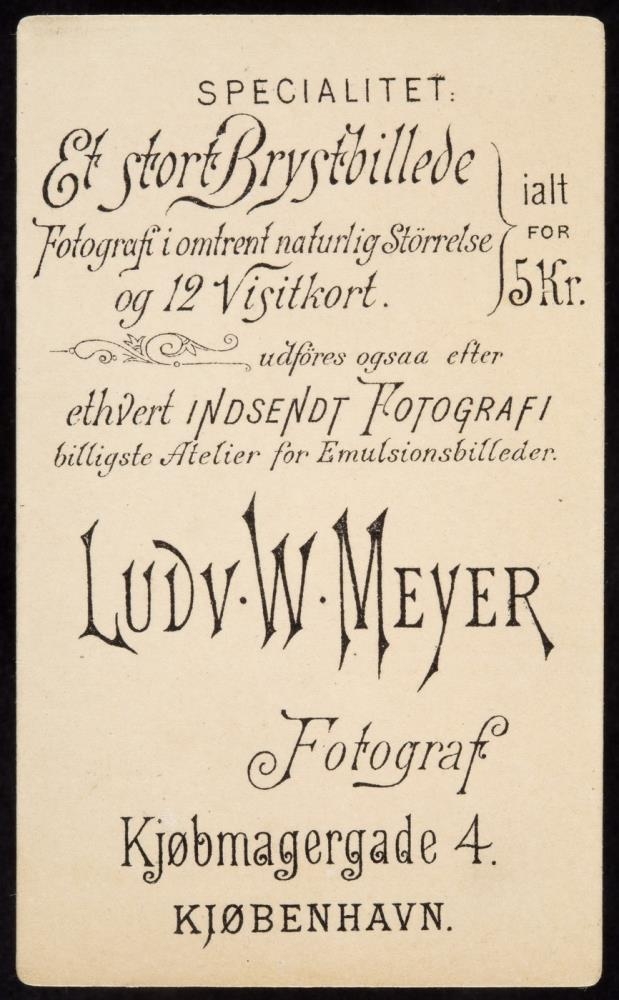 SPECIALITET:
Et stort Brystbillede
Fotografi i omtrent naturlig Störrelse
og 12 Visitkort.
ialt
FOR
5 Kr.
udföres ogsaa efter
ethvert INDSENDT FOTOGRAFI
billigste Atelier for Emulsionsbilleder.
LUDV. W. MEYER
Fotograf
Kjøbmagergade 4.
KJØBENHAVN.